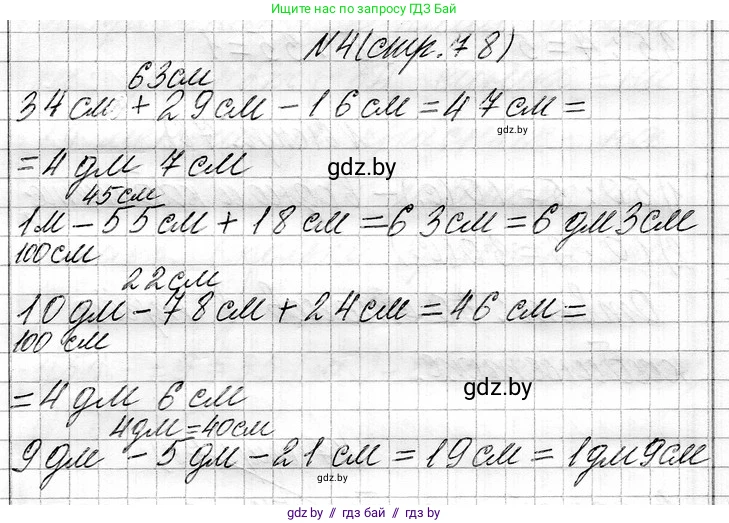 Ищите нас по запросу ГДЗ Бай
N4(стр.78)
63см
34см + 29см - 16см = 47см =
gdz.by
= 4 дм 7 см
gdz.by
45см
1м - 55см + 18см = 63см = 6 дм 3см
100см
22см
10дм - 78см + 24см = 46 см =
100 см
= 4 дм 6 см
gdz.by
4дм = 40см
9дм - 5дм - 21см = 19см = 1дм 9см
gdz.by
gdz.by // гдз бай // gdz.by